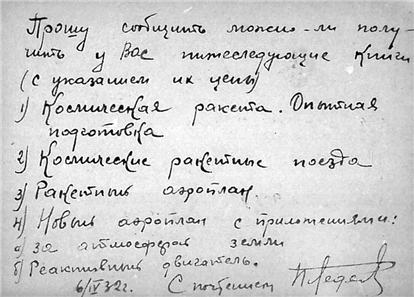 Прошу сообщить можно-ли полу-
чить у Вас нижеследующие книги
(с указанием их цены)
1) Космическая ракета. Опытная
подготовка
2) Космические ракетные поезда
3) Ракетный аэроплан
4) Новый аэроплан с приложениями:
а) за атмосферой земли
б) Реактивный двигатель.
6/IV 32г. С почтением